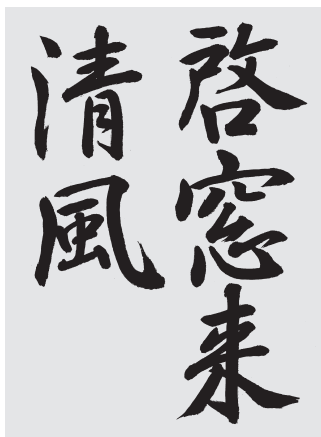 啓窓来
清風